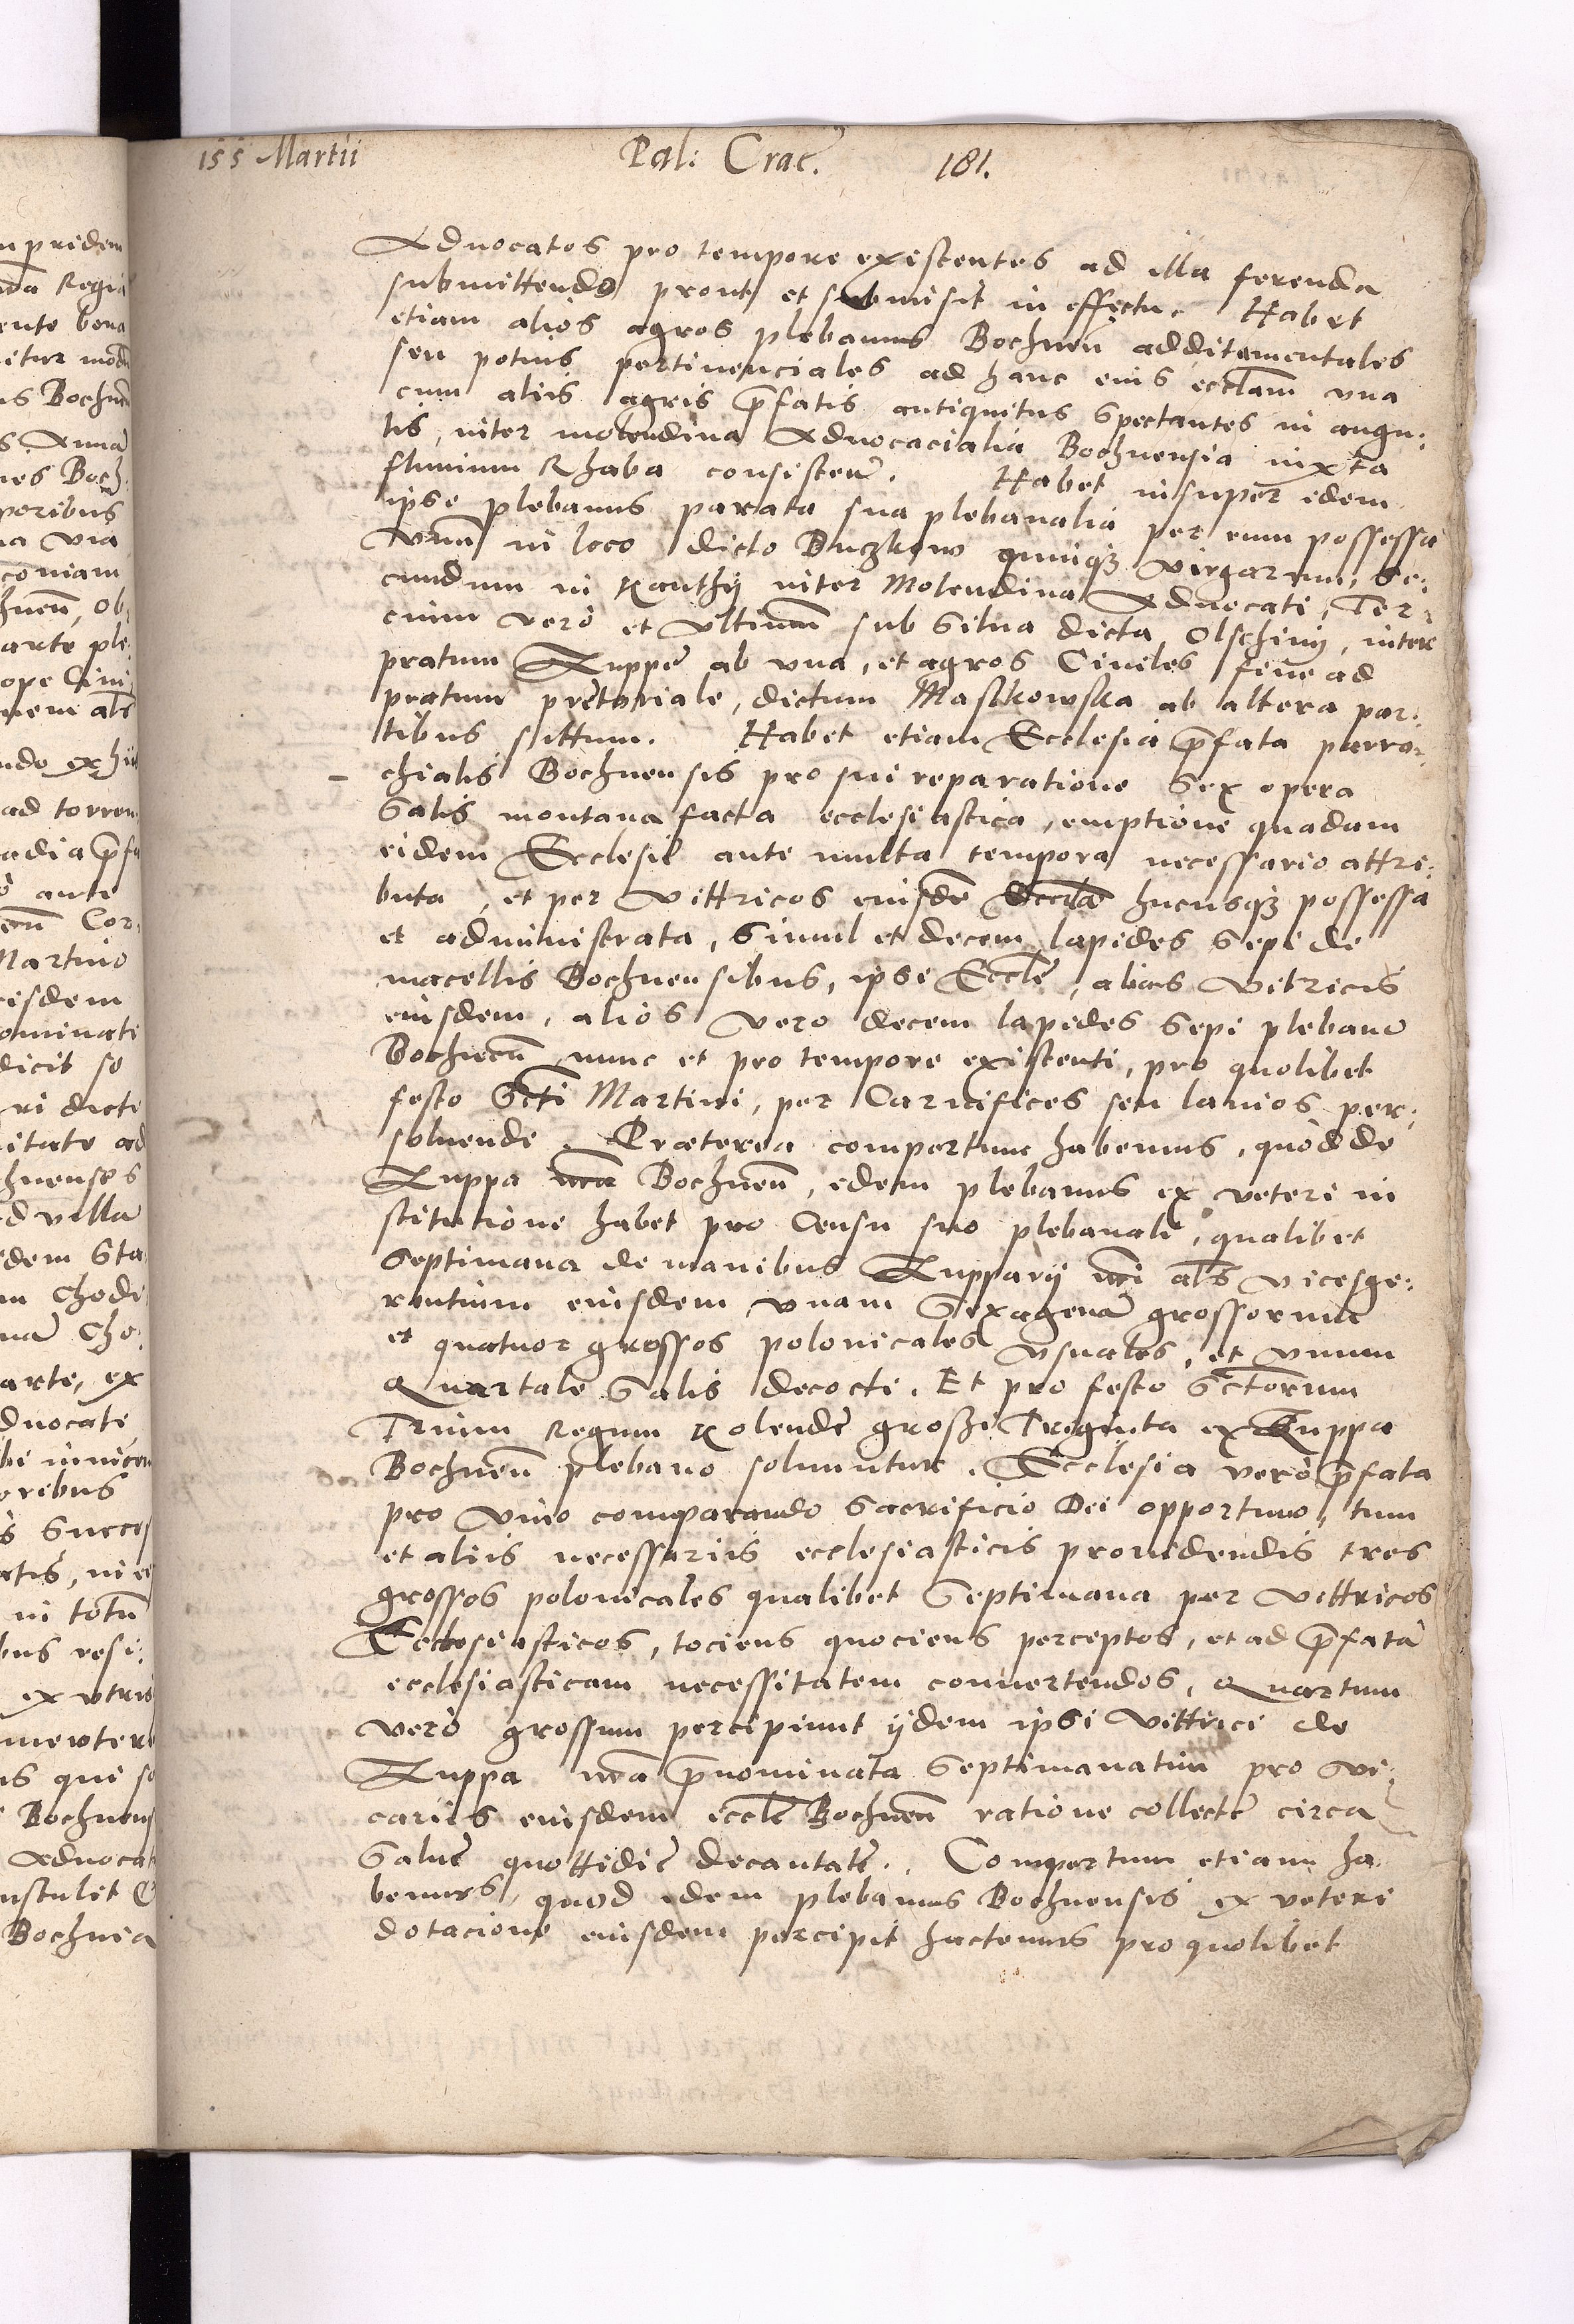 155 Martii Pal: Crac. 181.
Aduocatos pro tempore existentes ad illa ferenda
submittendo prout et submisit in effectu. Habet
etiam alios agros plebanus Bochnen additamentales
seu potius pertinenciales ad hanc eius ecclam vna
cum aliis agris pfatis antiquitus spectantes in angu:
lis, inter molendina Aduocacialia Bochnensia iuxta
fluuium Rhaba consisten. Habet insuper idem
ipse plebanus parata sua plebanalia per eum possessa
Vnu in loco dicto Buczkow quinqz virgarum, Se:
cundum in Kanthy inter Molendina Aduocati, Ter:
cium vero et vltimum sub silua dicta Olschiny, inter
pratum Zuppe ab vna, et agros Ciuiles siue ad
pratum pretoriale, dictum Mastkowska ab altera par:
tibus sittum. Habet etiam Ecclesia pfata parro:
chialis Bochnensis pro sui reparatione sex opera
Salis montana facta ecclesiastica, emptione quadam
eidem Ecclesie ante multa tempora necessario attri:
buta, et per Vittricos eiusde Eccle hucusqz possessa
et administrata, Simul et decem lapides sepi de
macellis Bochnensibus, ipse Eccle, alias Vitricis
eiusdem, alios vero decem lapides sepi plebano
Bochnen nunc et pro tempore existenti, pro quolibet
festo Scti Martini, per Carnifices seu lanios per:
soluendi. Præterea compertum habemus, quod de
Zuppa nra Bochnen, idem plebanus ex veteri in
stitutione habet pro Censu suo plebanali, qualibet
Septimana de manibus Zupparij nri als vicesge:
rentium eiusdem vnam sexagena grossorum
et quatuor grossos polonicales vsuales, et vnum
Quartale Salis decocti. Et pro festo Sctorum
Trium Regum Kolende grossi Triginta ex Zuppa
Bochnen plebano soluuntur. Ecclesia vero pfata
pro vino comparando Sacrificio Dei opportuno, tum
et aliis necessariis ecclesiasticis prouidendis tres
grossos polonicales qualibet Septimana per Vittricos
Ecclesiasticos, tociens quociens perceptos, et ad pfata
ecclesiasticam necessitatem conuertendos, Quartum
vero grossum percipiunt ijdem ipsi Vittrici de
Zuppa nra pnominata Septimanatim pro Vi:
cariis eiusdem eccle Bochnen ratione collecte circa
Salue quottidie decantate. Compertum etiam ha
bemus, quod idem plebanus Bochnensis ex veteri
dotacione eiusdem percipit hactenus pro quolibet